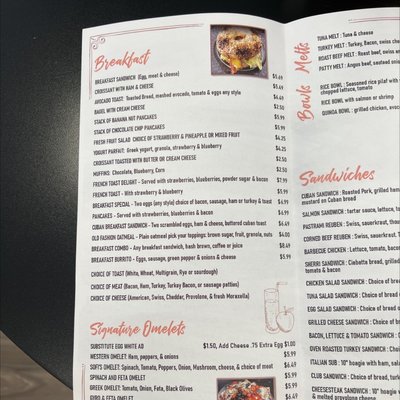 Breakfast
BREAKFAST SANDWICH (Egg, meat & cheese) $5.49
CROISSANT WITH HAM & CHEESE $5.49
AVOCADO TOAST: Toasted Bread, mashed avocado, tomato & eggs any style $6.49
BAGEL WITH CREAM CHEESE $2.50
STACK OF BANANA NUT PANCAKES $5.99
STACK OF CHOCOLATE CHIP PANCAKES $5.99
FRESH FRUIT SALAD CHOICE OF STRAWBERRY & PINEAPPLE OR MIXED FRUIT $4.25
YOGURT PARFAIT: Greek yogurt, granola, strawberry & blueberry $4.25
CROISSANT TOASTED WITH BUTTER OR CREAM CHEESE $2.50
MUFFINS: Chocolate, Blueberry, Corn $2.50
FRENCH TOAST DELIGHT - Served with strawberries, blueberries, powder sugar & bacon $7.99
FRENCH TOAST - With strawberry & blueberry $5.99
BREAKFAST SPECIAL - Two eggs (any style) choice of bacon, sausage, ham or turkey & toast $6.99
PANCAKES - Served with strawberries, blueberries & bacon $6.99
CUBAN BREAKFAST SANDWICH - Two scrambled eggs, ham & cheese, buttered cuban toast $6.49
OLD FASHION OATMEAL - Plain oatmeal pick your toppings: brown sugar, fruit, granola, nuts $4.00
BREAKFAST COMBO - Any breakfast sandwich, hash brown, coffee or juice $8.49
BREAKFAST BURRITO - Eggs, sausage, green pepper & onions & cheese $5.99
CHOICE OF TOAST (White, Wheat, Multigrain, Rye or sourdough)
CHOICE OF MEAT (Bacon, Ham, Turkey, Turkey Bacon, or sausage patties)
CHOICE OF CHEESE (American, Swiss, Cheddar, Provolone, & fresh Mozzarella)
Signature Omelets
SUBSTITUTE EGG WHITE AD $1.50, Add Cheese .75 Extra Egg $1.00
WESTERN OMELET: Ham, peppers, & onions $5.99
SOFI'S OMELET: Spinach, Tomato, Peppers, Onion, Mushroom, cheese, & choice of meat $6.49
SPINACH AND FETA OMELET $5.99
GREEK OMELET: Tomato, Onion, Feta, Black Olives $5.99
GYRO & FETA OMELET
Melts
TUNA MELT: Tuna & cheese
TURKEY MELT: Turkey, Bacon, swiss
ROAST BEEF MELT: Roast beef, swiss
PATTY MELT: Angus beef, seated
Bowls
RICE BOWL: Seasoned rice pilaf with
chopped lettuce, tomato
RICE BOWL with salmon or shrimp
QUINOA BOWL: grilled chicken,
Sandwiches
CUBAN SANDWICH: Roasted Pork, grilled
mustard on Cuban bread
SALMON SANDWICH: tartar sauce, lettuce,
PASTRAMI REUBEN: Swiss, sauerkraut,
CORNED BEEF REUBEN: Swiss, sauerkraut,
BARBECUE CHICKEN: Lettuce, tomato,
SHERRI SANDWICH: Ciabatta bread, grilled
tomato & bacon
CHICKEN SALAD SANDWICH: Choice of
TUNA SALAD SANDWICH: Choice of bread
EGG SALAD SANDWICH: Choice of bread
GRILLED CHEESE SANDWICH: Choice of
BACON, LETTUCE & TOMATO SANDWICH:
OVEN ROASTED TURKEY SANDWICH: Choice
ITALIAN SUB: 10" hoagie with ham,
CLUB SANDWICH: Choice of bread, turkey
CHEESESTEAK SANDWICH: 10" hoagie with
& melted provolone cheese